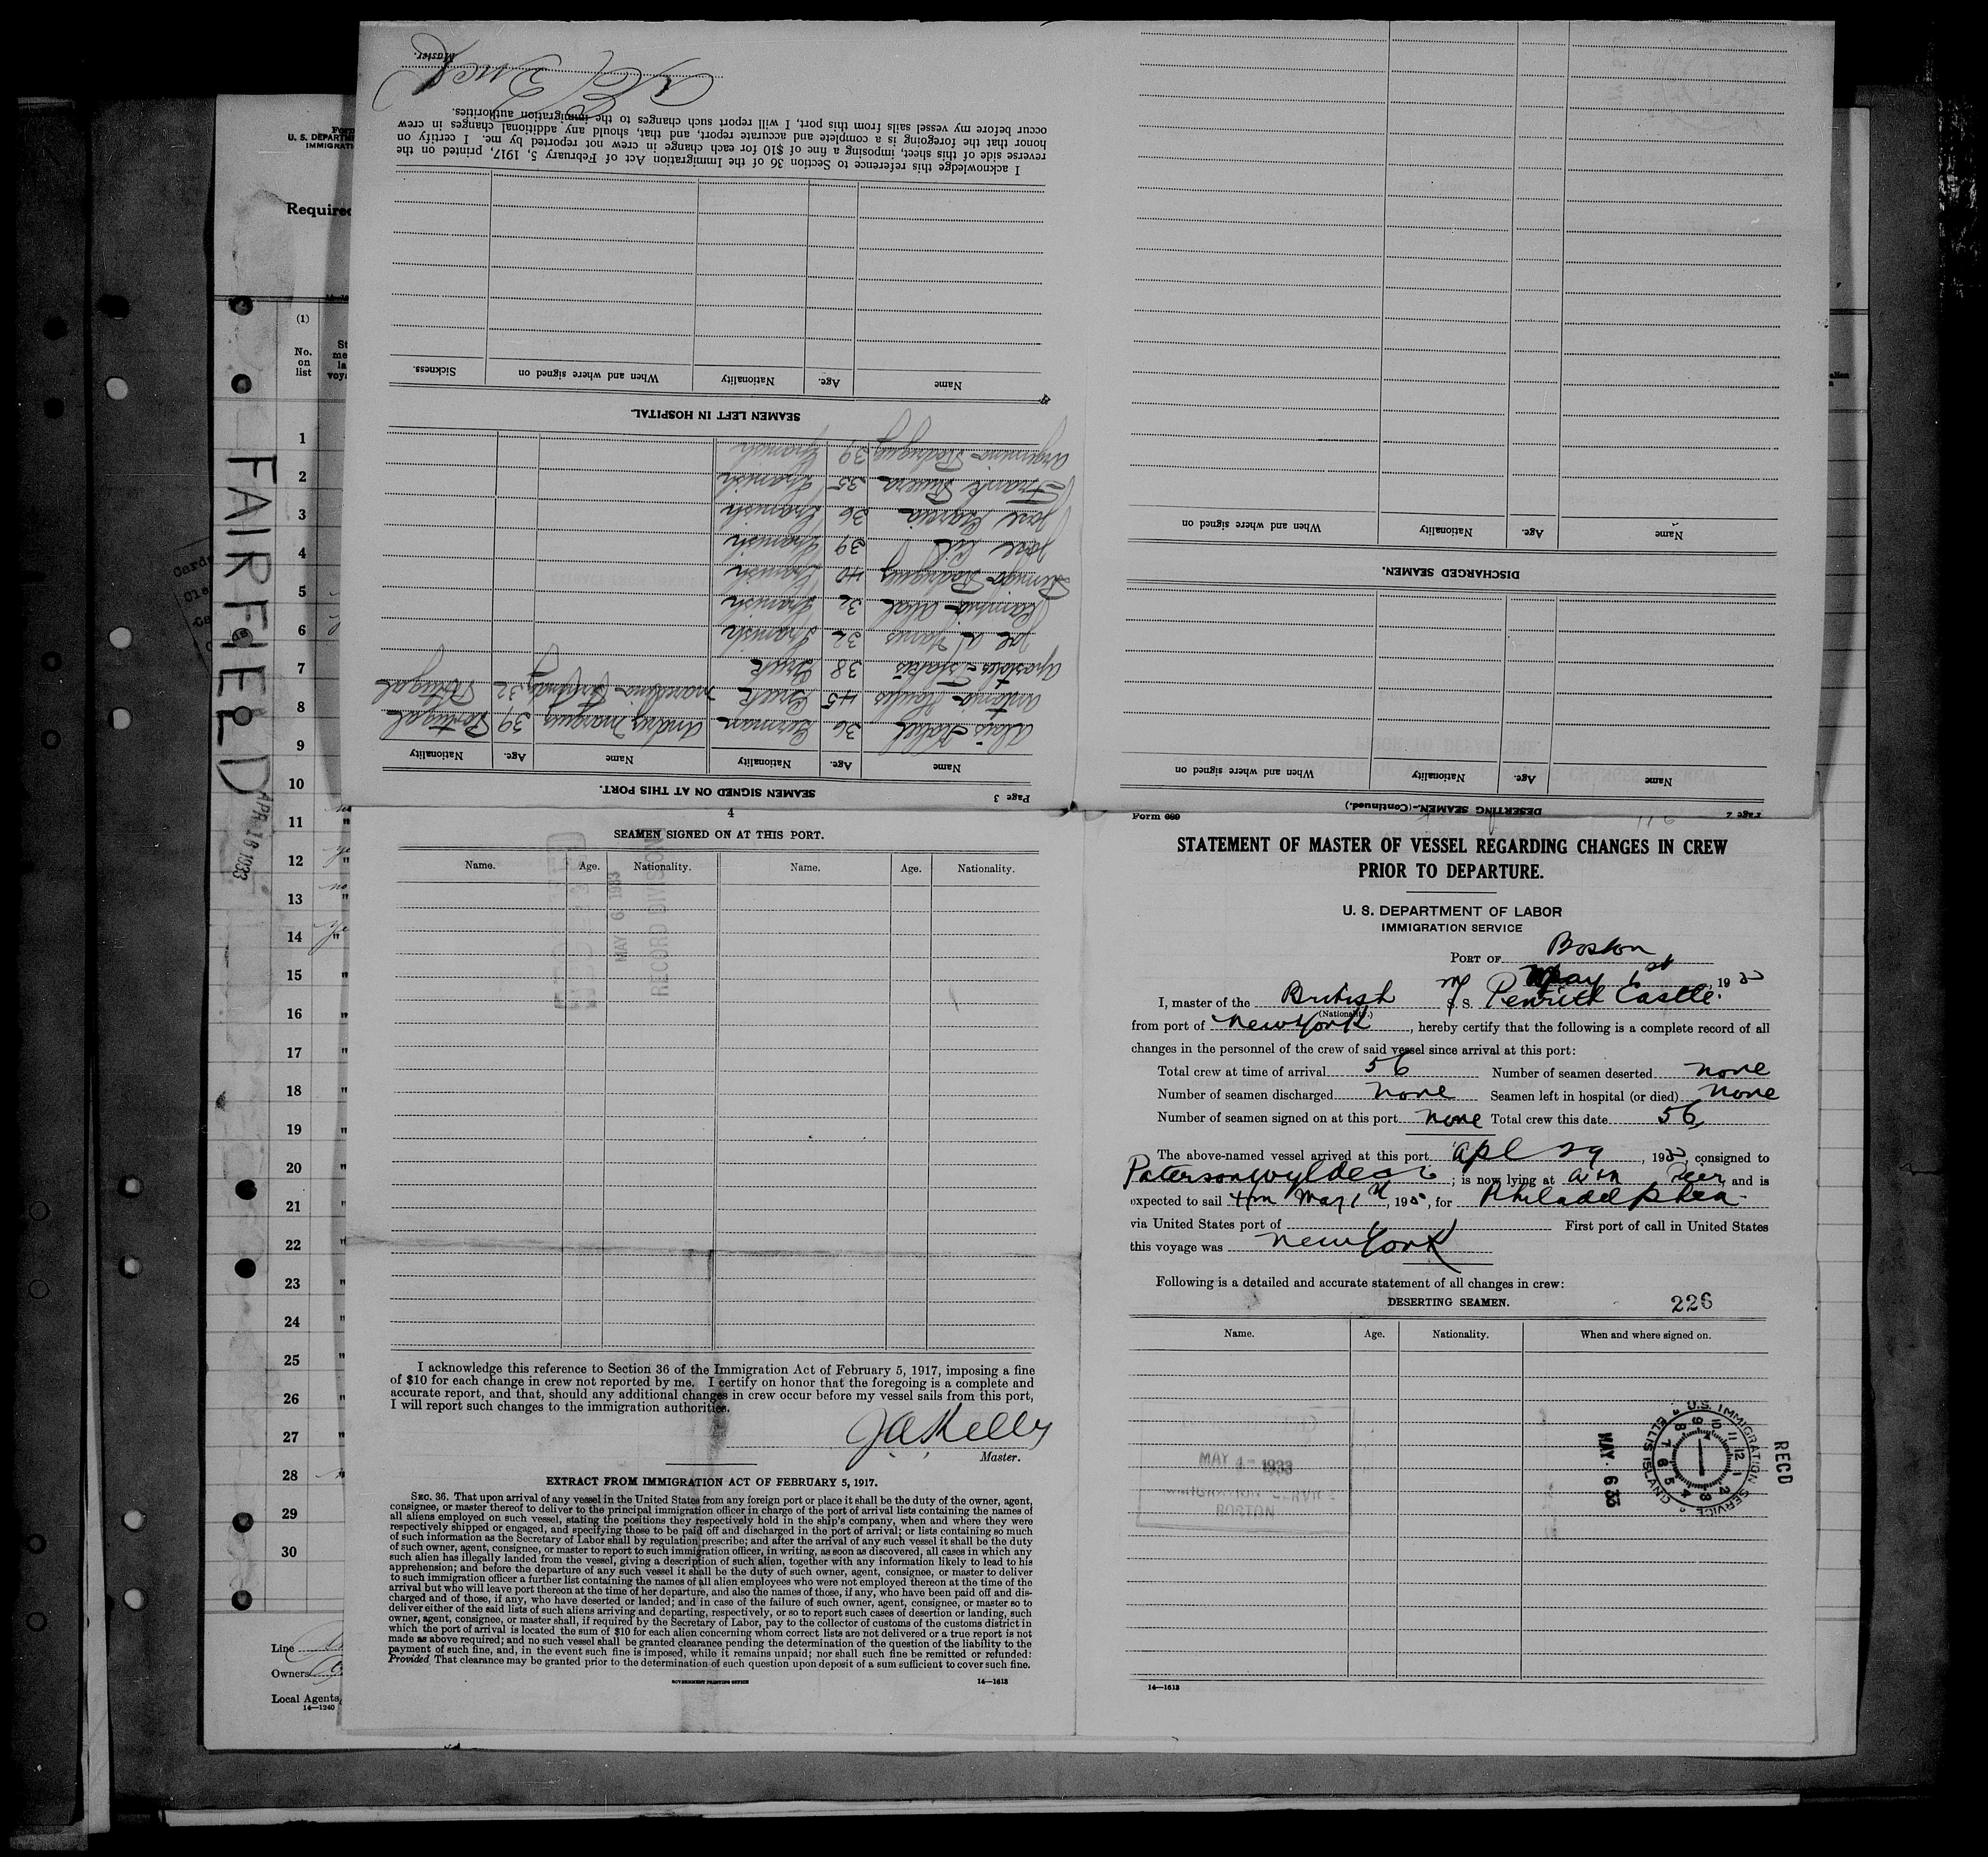 FAIRFIELD
APR 18 1933
U. S. DEPARTM
IMMIGRATI
Required
(1)
No.
on
list
1
2
3
4
5
6
7
8
9
10
11
12
13
14
15
16
17
18
19
20
21
22
23
24
25
26
27
28
29
30
Line
Owners
Local Agents
14—1240
Page 3
SEAMEN SIGNED ON AT THIS PORT.
Name Age. Nationality Name Age. Nationality
Alois 36 German Marques 39 Portugal
Antonio 45 Greek 32 Portugal
38 Greek
32 Spanish
32 Spanish
Rodriguez 40 Spanish
Jose Gil 39 Spanish
Jose Garcia 36 Spanish
Frank Rivera 35 Spanish
Rodriguez 39 Spanish
SEAMEN LEFT IN HOSPITAL.
Name Age. Nationality When and where signed on Sickness.
I acknowledge this reference to Section 36 of the Immigration Act of February 5, 1917, printed on the
reverse side of this sheet, imposing a fine of $10 for each change in crew not reported by me. I certify on
honor that the foregoing is a complete and accurate report, and that, should any additional changes in crew
occur before my vessel sails from this port, I will report such changes to the immigration authorities.
Master.
Page 2
DESERTING SEAMEN.—(Continued.)
Name Age. Nationality When and where signed on
DISCHARGED SEAMEN.
Name Age. Nationality When and where signed on
4
SEAMEN SIGNED ON AT THIS PORT.
Name. Age. Nationality. Name. Age. Nationality.
MAY 6 1933
RECORD DIVISION
I acknowledge this reference to Section 36 of the Immigration Act of February 5, 1917, imposing a fine
of $10 for each change in crew not reported by me. I certify on honor that the foregoing is a complete and
accurate report, and that, should any additional changes in crew occur before my vessel sails from this port,
I will report such changes to the immigration authorities.
J A Kelly
Master.
EXTRACT FROM IMMIGRATION ACT OF FEBRUARY 5, 1917.
SEC. 36. That upon arrival of any vessel in the United States from any foreign port or place it shall be the duty of the owner, agent,
consignee, or master thereof to deliver to the principal immigration officer in charge of the port of arrival lists containing the names of
all aliens employed on such vessel, stating the positions they respectively hold in the ship's company, when and where they were
respectively shipped or engaged, and specifying those to be paid off and discharged in the port of arrival; or lists containing so much
of such information as the Secretary of Labor shall by regulation prescribe; and after the arrival of any such vessel it shall be the duty
of such owner, agent, consignee, or master to report to such immigration officer, in writing, as soon as discovered, all cases in which any
such alien has illegally landed from the vessel, giving a description of such alien, together with any information likely to lead to his
apprehension; and before the departure of any such vessel it shall be the duty of such owner, agent, consignee, or master to deliver
to such immigration officer a further list containing the names of all alien employees who were not employed thereon at the time of the
arrival but who will leave port thereon at the time of her departure, and also the names of those, if any, who have been paid off and dis-
charged and of those, if any, who have deserted or landed; and in case of the failure of such owner, agent, consignee, or master so to
deliver either of the said lists of such aliens arriving and departing, respectively, or so to report such cases of desertion or landing, such
owner, agent, consignee, or master shall, if required by the Secretary of Labor, pay to the collector of customs of the customs district in
which the port of arrival is located the sum of $10 for each alien concerning whom correct lists are not delivered or a true report is not
made as above required; and no such vessel shall be granted clearance pending the determination of the question of the liability to the
payment of such fine, and, in the event such fine is imposed, while it remains unpaid; nor shall such fine be remitted or refunded:
Provided That clearance may be granted prior to the determination of such question upon deposit of a sum sufficient to cover such fine.
GOVERNMENT PRINTING OFFICE 14—1613
Form 689
STATEMENT OF MASTER OF VESSEL REGARDING CHANGES IN CREW
PRIOR TO DEPARTURE.
U. S. DEPARTMENT OF LABOR
IMMIGRATION SERVICE
PORT OF Boston
May 1st, 193
I, master of the British S. S. Penrith Castle.
(Nationality.)
from port of New York, hereby certify that the following is a complete record of all
changes in the personnel of the crew of said vessel since arrival at this port:
Total crew at time of arrival 56 Number of seamen deserted none
Number of seamen discharged none Seamen left in hospital (or died) none
Number of seamen signed on at this port none Total crew this date 56
The above-named vessel arrived at this port Apl 29, 193, consigned to
Paterson Wylde; is now lying at Pier, and is
expected to sail May 1st, 193, for Philadelphia
via United States port of First port of call in United States
this voyage was New York
Following is a detailed and accurate statement of all changes in crew:
DESERTING SEAMEN. 226
Name. Age. Nationality. When and where signed on.
MAY 4 - 1933
IMMIGRATION SERVICE
BOSTON
RECD
U.S. IMMIGRATION SERVICE ELLIS ISLAND
MAY 6 33
14—1613